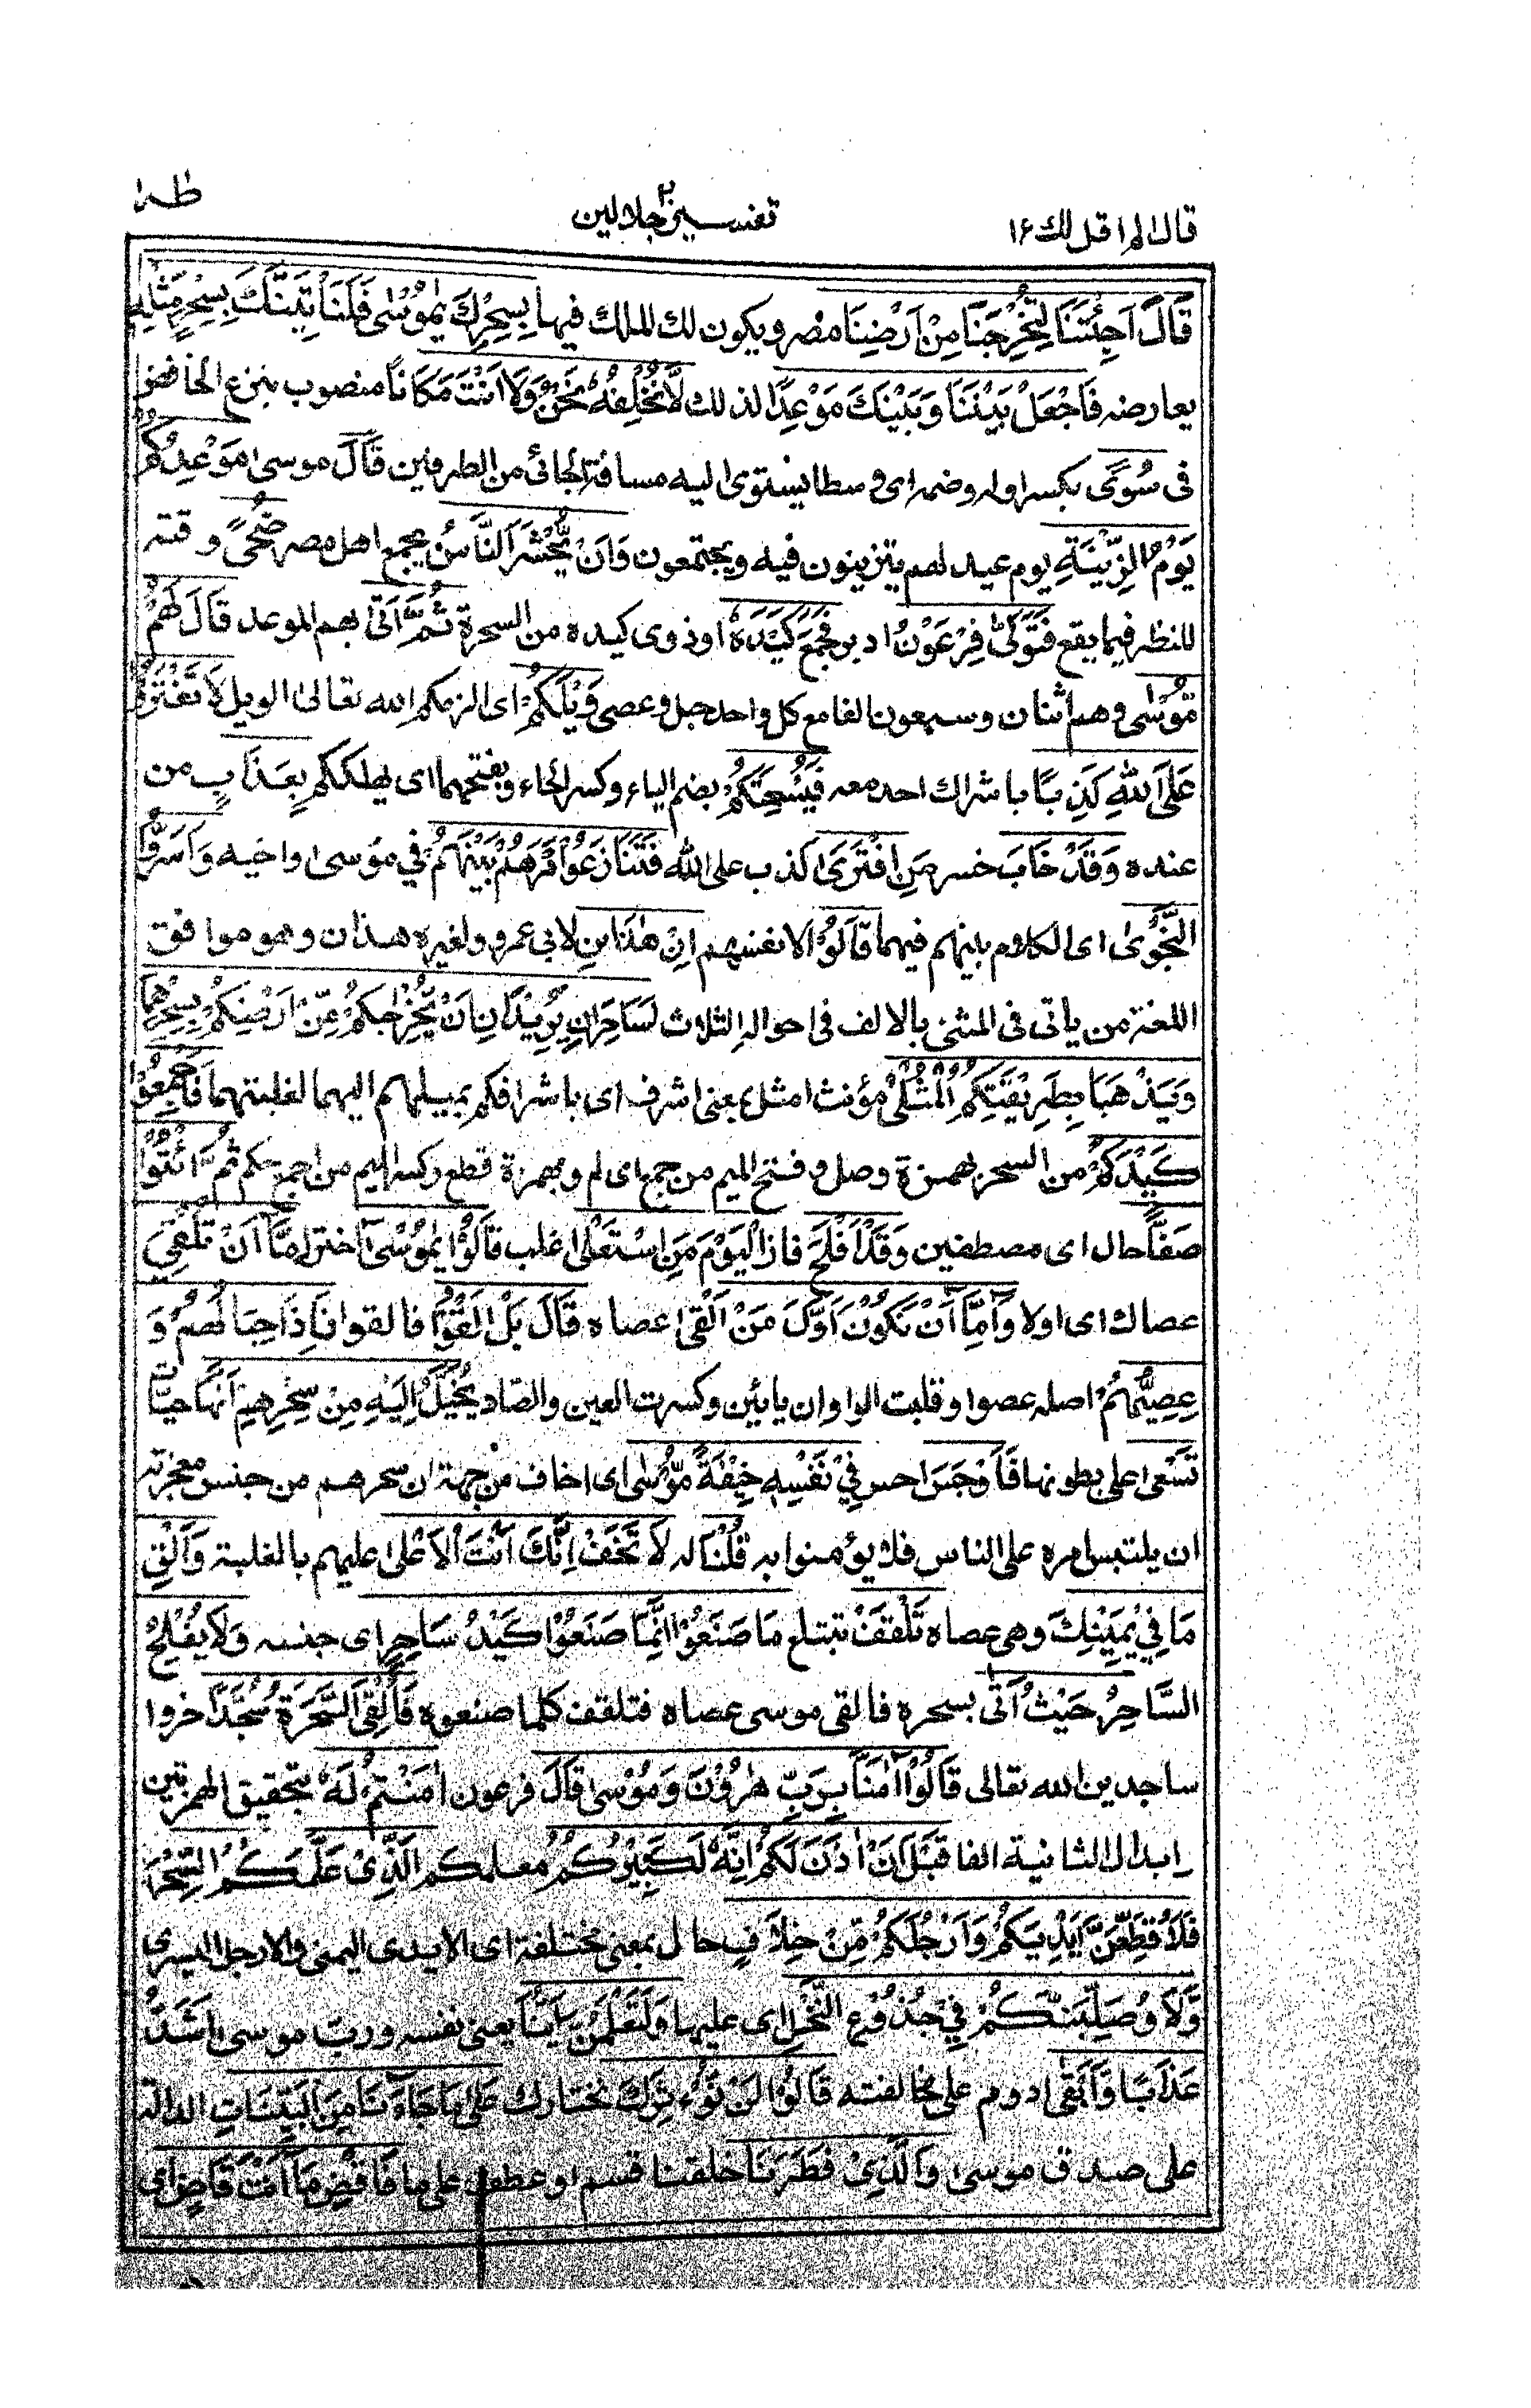 قال الم اقل لك ۱۶
تفسیر جلالین ۲
طه
قَالَ اَجِئْتَنَا لِتُخْرِجَنَا مِنْ اَرْضِنَا مصر ويكون لك الملك فيها بِسِحْرِكَ يٰمُوْسٰى فَلَنَاْتِيَنَّكَ بِسِحْرٍ مِّثْلِهٖ
يعارضه فَاجْعَلْ بَيْنَنَا وَبَيْنَكَ مَوْعِدًا لذلك لَّا نُخْلِفُهٗ نَحْنُ وَلَا اَنْتَ مَكَانًا منصوب بنزع الخافض
فى سُوًى بكسر اوله وضمه اى وسطا يستوى اليه مسافة الجائى من الطرفين قَالَ موسى مَوْعِدُكُمْ
يَوْمُ الزِّيْنَةِ يوم عيد لهم يتزينون فيه ويجتمعون وَاَنْ يُّحْشَرَ النَّاسُ يجمع اهل مصر ضُحًى وقته
للنظر فيما يقع فَتَوَلّٰى فِرْعَوْنُ ادبر فَجَمَعَ كَيْدَهٗ اى ذوى كيده من السحرة ثُمَّ اَتٰى بهم الموعد قَالَ لَهُمْ
مُّوْسٰى وهم اثنان وسبعون الفا مع كل واحد حبل وعصى وَيْلَكُمْ اى الزمكم الله تعالى الويل لَا تَفْتَرُوْا
عَلَى اللّٰهِ كَذِبًا باشراك احد معه فَيُسْحِتَكُمْ بضم الياء وكسر الحاء وبفتحهما اى يهلككم بِعَذَابٍ من
عنده وَقَدْ خَابَ خسر مَنِ افْتَرٰى كذب على الله فَتَنَازَعُوْا اَمْرَهُمْ بَيْنَهُمْ فى موسى واخيه وَاَسَرُّوا
النَّجْوٰى اى الكلام بينهم فيهما قَالُوْا لانفسهم اِنْ هٰذَيْنِ لابى عمرو ولغيره هذان وهو موافق
اللغة من ياتى فى المثنى بالالف فى احواله الثلاث لَسَاحِرَانِ يُرِيْدَانِ اَنْ يُّخْرِجٰكُمْ مِّنْ اَرْضِكُمْ بِسِحْرِهِمَا
وَيَذْهَبَا بِطَرِيْقَتِكُمُ الْمُثْلٰى مؤنث امثل بمعنى اشرف اى باشرافكم بميلهم اليهما لغلبتهما فَاَجْمِعُوْا
كَيْدَكُمْ من السحر بهمزة وصل وفتح الميم من جمع اى لم وبهمزة قطع وكسر الميم من اجمع حكم ثُمَّ ائْتُوْا
صَفًّا حال اى مصطفين وَقَدْ اَفْلَحَ فاز الْيَوْمَ مَنِ اسْتَعْلٰى غلب قَالُوْا يٰمُوْسٰى اختر اِمَّا اَنْ تُلْقِيَ
عصاك اى اولا وَاِمَّا اَنْ نَّكُوْنَ اَوَّلَ مَنْ اَلْقٰى عصاه قَالَ بَلْ اَلْقُوْا فالقوا فَاِذَا حِبَالُهُمْ وَ
عِصِيُّهُمْ اصله عصوو قلبت الواوان يائين وكسرت العين والصاد يُخَيَّلُ اِلَيْهِ مِنْ سِحْرِهِمْ اَنَّهَا حيات
تَسْعٰى على بطونها فَاَوْجَسَ احس فِيْ نَفْسِهٖ خِيْفَةً مُّوْسٰى اى خاف من جهة ان سحرهم من جنس معجزته
ان يلتبس امره على الناس فلا يؤمنوا به قُلْنَا له لَا تَخَفْ اِنَّكَ اَنْتَ الْاَعْلٰى عليهم بالغلبة وَاَلْقِ
مَا فِيْ يَمِيْنِكَ وهى عصاه تَلْقَفْ تبتلع مَا صَنَعُوْا اِنَّمَا صَنَعُوْا كَيْدُ سَاحِرٍ اى جنسه وَلَا يُفْلِحُ
السَّاحِرُ حَيْثُ اَتٰى بسحره فالقى موسى عصاه فتلقف كلما صنعوه فَاُلْقِيَ السَّحَرَةُ سُجَّدًا خروا
ساجدين لله تعالى قَالُوْا اٰمَنَّا بِرَبِّ هٰرُوْنَ وَمُوْسٰى قَالَ فرعون اٰمَنْتُمْ لَهٗ بتحقيق الهمزتين
وابدال الثانية الفا قَبْلَ اَنْ اٰذَنَ لَكُمْ اِنَّهٗ لَكَبِيْرُكُمُ معلمكم الَّذِيْ عَلَّمَكُمُ السِّحْرَ
فَلَاُقَطِّعَنَّ اَيْدِيَكُمْ وَاَرْجُلَكُمْ مِّنْ خِلَافٍ حال بمعنى مختلفة اى الايدى اليمنى والارجل اليسرى
وَّلَاُوصَلِّبَنَّكُمْ فِيْ جُذُوْعِ النَّخْلِ اى عليها وَلَتَعْلَمُنَّ اَيُّنَا يعنى نفسه ورب موسى اَشَدُّ
عَذَابًا وَّاَبْقٰى ادوم على مخالفته قَالُوْا لَنْ نُّؤْثِرَكَ نختارك عَلٰى مَا جَاءَنَا مِنَ الْبَيِّنٰتِ الدالة
على صدق موسى وَالَّذِيْ فَطَرَنَا خلقنا قسم او عطف على ما فَاقْضِ مَا اَنْتَ قَاضٍ اى